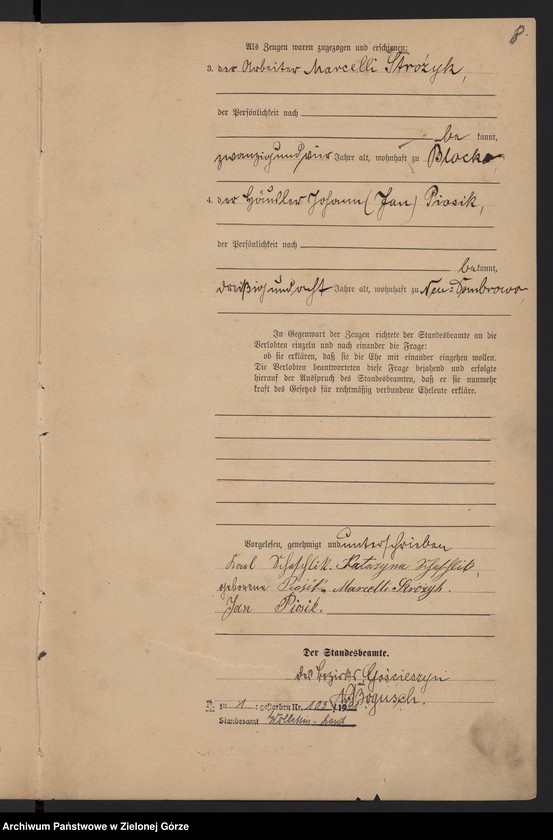 8.
Als Zeugen waren zugezogen und erschienen:
3. der Arbeiter Marcelli Stróżyk,
der Persönlichkeit nach
be kannt,
zwanzigundvier Jahre alt, wohnhaft zu Blocko,
4. der Häusler Johann (Jan) Piosik,
der Persönlichkeit nach
bekannt,
dreißigundacht Jahre alt, wohnhaft zu Neu-Dombrowo,
In Gegenwart der Zeugen richtete der Standesbeamte an die
Verlobten einzeln und nach einander die Frage:
ob sie erklären, daß sie die Ehe mit einander eingehen wollen.
Die Verlobten beantworteten diese Frage bejahend und erfolgte
hierauf der Ausspruch des Standesbeamten, daß er sie nunmehr
kraft des Gesetzes für rechtmäßig verbundene Eheleute erkläre.
Vorgelesen, genehmigt und unterschrieben
Karl Schaschlik. Katarzyna Schaschlik,
geborene Piosik. Marcelli Strożyk.
Jan Piosik.
Der Standesbeamte.
des Bezirks Gościeszyn
Bogusch.
zu 1 : gestorben Nr. 103 /19
Standesamt Wollstein-Land
Archiwum Państwowe w Zielonej Górze